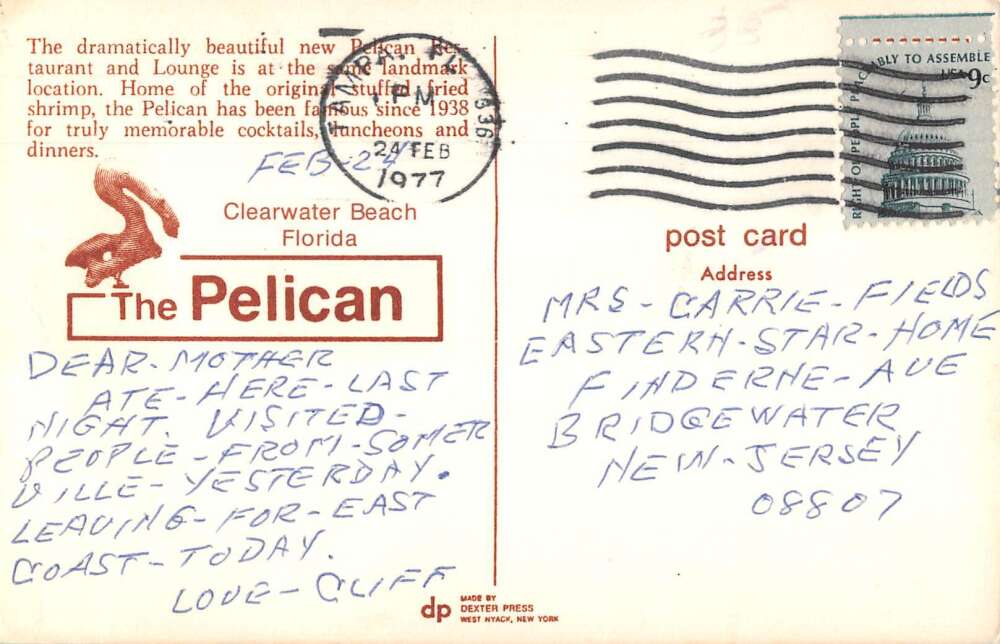 The dramatically beautiful new Pelican Res-
taurant and Lounge is at the same landmark
location. Home of the original stuffed fried
shrimp, the Pelican has been famous since 1938
for truly memorable cocktails, luncheons and
dinners.
FEB-24
Clearwater Beach
Florida
The Pelican
DEAR-MOTHER
ATE-HERE-LAST
NIGHT. VISITED-
PEOPLE-FROM-SOMER
VILLE-YESTERDAY.
LEAVING-FOR-EAST
COAST-TODAY.
LOVE-CLIFF
dp MADE BY
DEXTER PRESS
WEST NYACK, NEW YORK
TAMPA, FL 336
PM
24 FEB
1977
RIGHT OF PEOPLE PEACEABLY TO ASSEMBLE
USA 9c
post card
Address
MRS-CARRIE-FIELDS
EASTERN-STAR-HOME
FINDERNE-AVE
BRIDGEWATER
NEW-JERSEY
08807